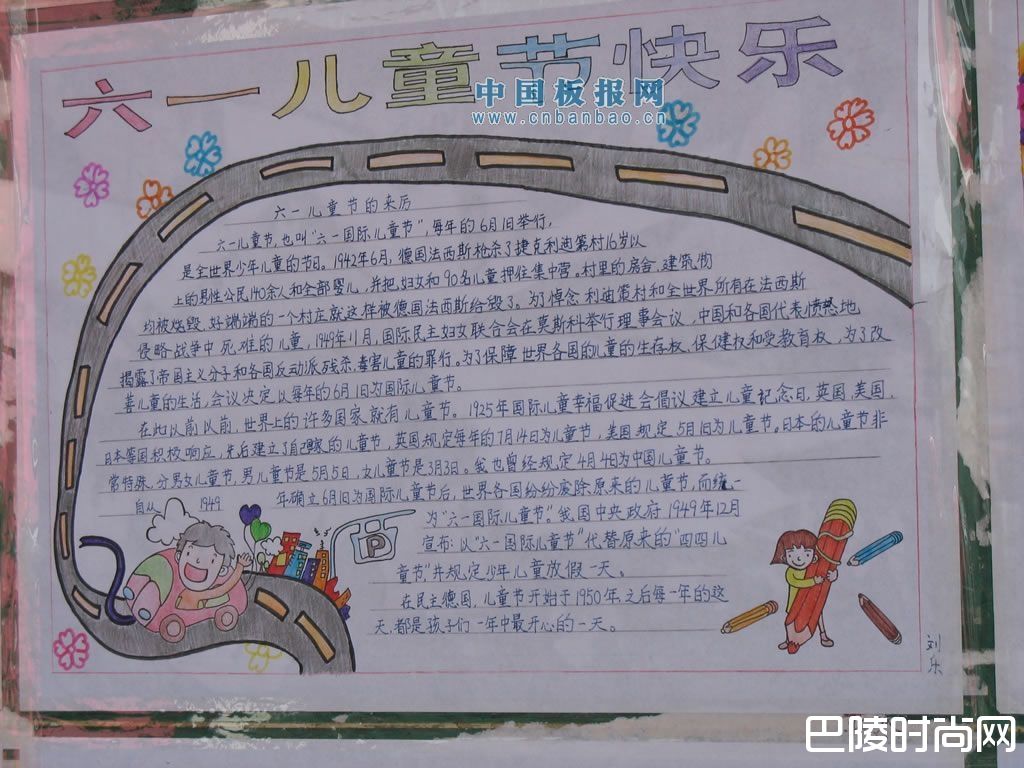 六一儿童节快乐
中国板报网
www.cnbanbao.cn
六一儿童节的来历
六一儿童节,也叫“六一国际儿童节”,每年的6月1日举行,
是全世界少年儿童的节日。1942年6月,德国法西斯枪杀了捷克利迪策村16岁以
上的男性公民140余人和全部婴儿,并把妇女和90名儿童押往集中营。村里的房舍、建筑物
均被烧毁,好端端的一个村庄就这样被德国法西斯给毁了。为了悼念利迪策村和全世界所有在法西斯
侵略战争中死难的儿童,1949年11月,国际民主妇女联合会在莫斯科举行理事会议,中国和各国代表愤愤地
揭露了帝国主义分子和各国反动派残杀、毒害儿童的罪行。为了保障世界各国的儿童的生存权、保健权和受教育权,为了改
善儿童的生活,会议决定以每年的6月1日为国际儿童节。
在此以前以前,世界上的许多国家就有儿童节。1925年国际儿童幸福促进会倡议建立儿童纪念日,英国,美国,
日本等国积极响应,先后建立了自己国家的儿童节,英国规定每年的7月14日为儿童节,美国规定5月1日为儿童节。日本的儿童节非
常特殊,分男女儿童节,男儿童节是5月5日,女儿童节是3月3日。我也曾经规定4月4日为中国儿童节。
自从 1949 年确立6月1日为国际儿童节后,世界各国纷纷废除原来的儿童节,而统一
为“六一国际儿童节”。我国中央政府1949年12月
宣布:以“六一国际儿童节”代替原来的“四四儿
童节”,并规定少年儿童放假一天。
在民主德国,儿童节开始于1950年,之后每一年的这
天,都是孩子们一年中最开心的一天。
P
刘乐
巴陵时尚网